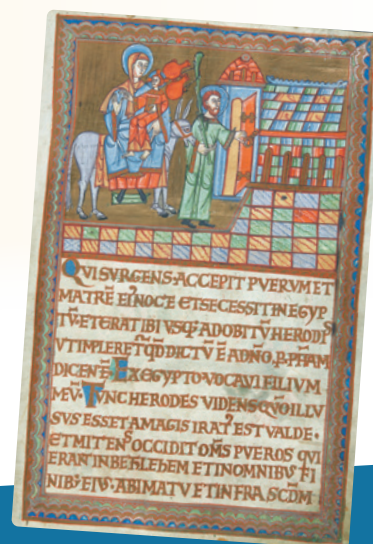 QVI SVRGENS·ACCEPIT PVERVM ET
MATRĒ EIꝰ NOCTE ET SECESSIT IN EGYP
TV̄·ET ERAT IBI VSQ; AD OBITV̄ HERODI
VT IMPLERET QD̄ DICTV̄ Ē A DN̄O
DICENTĒ EX EGYPTO·VOCAVI FILIVM
MEV̄· TVNC HERODES VIDENS QVO ILLV
SVS ESSET A MAGIS IRATꝰ EST VALDE·
ET MITTENS OCCIDIT OM̄S PVEROS QVI
ERANT IN BEHLEHEM ET IN OMNIBVS FI
NIBꝰ EIVS·A BIMATV ET INFRA SCD̄M